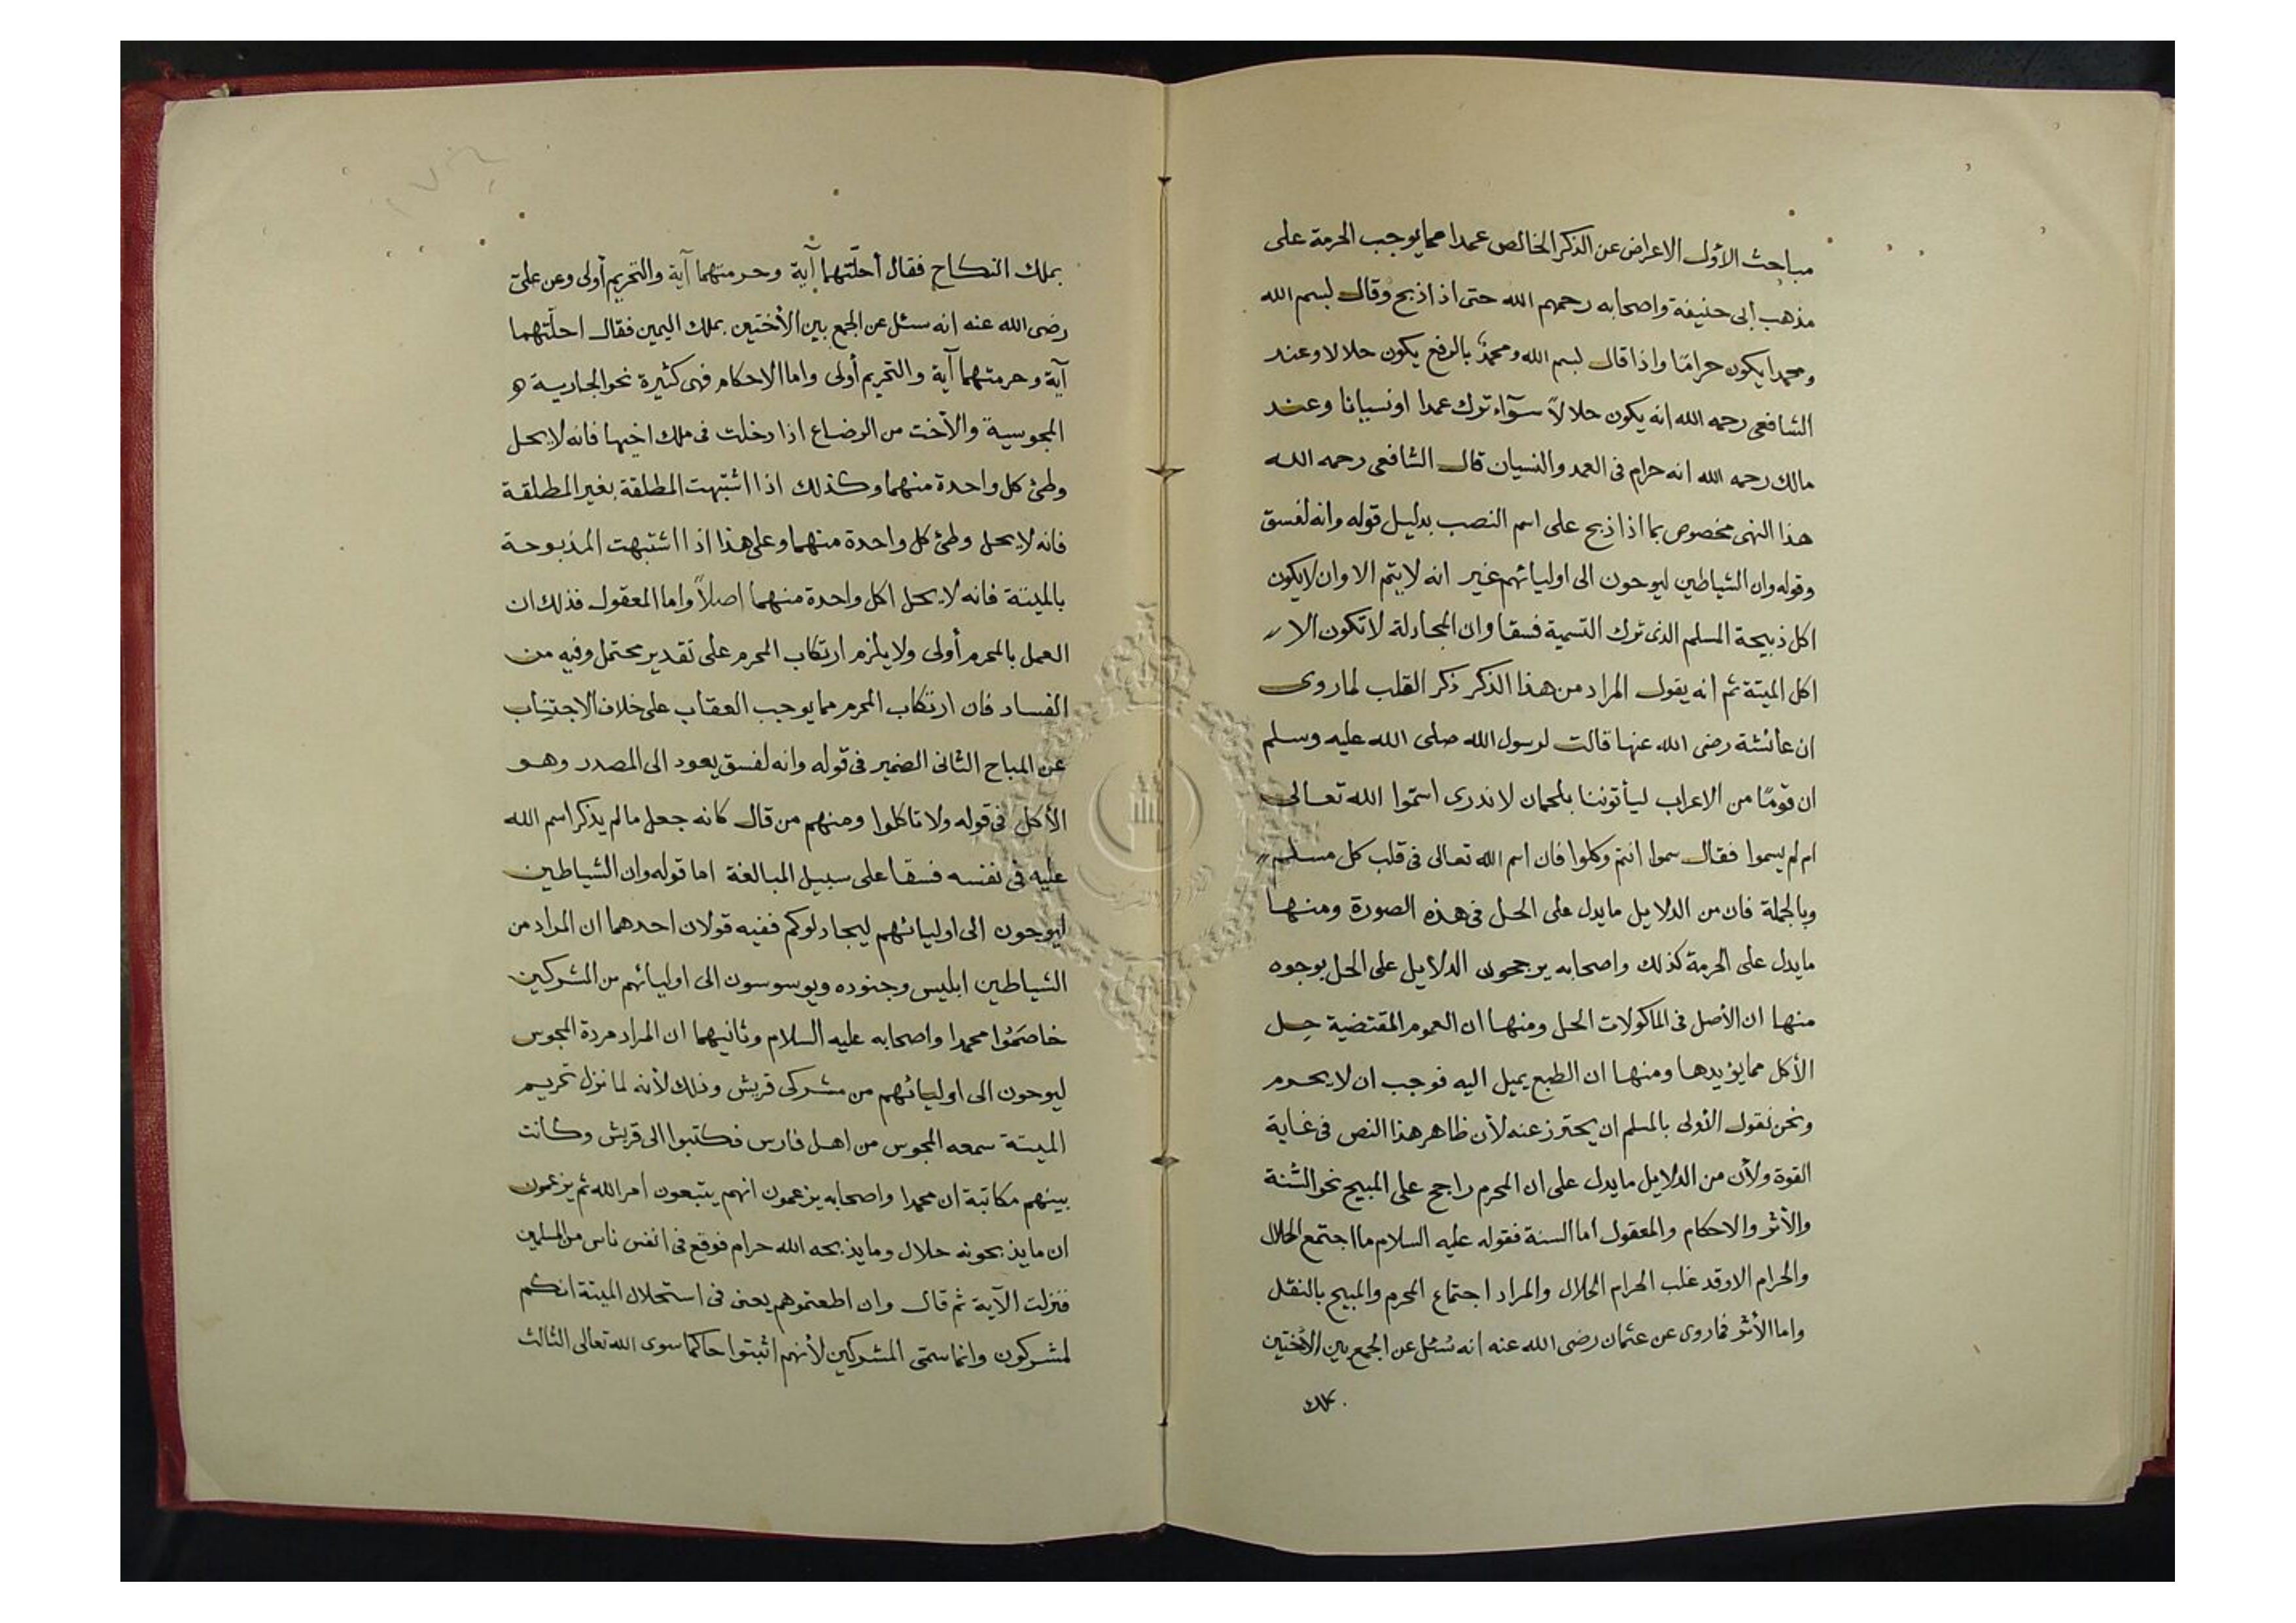 مباحث الأول الاعراض عن الذكر الخالص عمدا مما يوجب الحرمة على
مذهب ابى حنيفة واصحابه رحمهم الله حتى اذا ذبح وقال بسم الله
ومحمدا يكون حرامًا واذا قال بسم الله ومحمدٌ بالرفع يكون حلالا وعند
الشافعى رحمه الله انه يكون حلالاً سوآء ترك عمدا او نسيانا وعند
مالك رحمه الله انه حرام فى العمد والنسيان قال الشافعى رحمه الله
هذا النهى مخصوص بما اذا ذبح على اسم النصب بدليل قوله وانه لفسق
وقوله وان الشياطين ليوحون الى اوليائهم غير انه لا يتم الا وان لا يكون
اكل ذبيحة المسلم الذى ترك التسمية فسقا وان المجادلة لا تكون الا
اكل الميتة ثم انه يقول المراد من هذا الذكر ذكر القلب لما روى
ان عائشة رضى الله عنها قالت لرسول الله صلى الله عليه وسلم
ان قومًا من الاعراب ليأتوننا بلحمان لا ندرى اسمّوا الله تعالى
ام لم يسموا فقال سموا انتم وكلوا فان اسم الله تعالى فى قلب كل مسلم
وبالجملة فان من الدلايل ما يدل على الحل فى هذه الصورة ومنها
ما يدل على الحرمة كذلك واصحابه يرجحون الدلايل على الحل بوجوه
منها ان الأصل فى الماكولات الحل ومنها ان العموم المقتضية حِل
الأكل مما يؤيدها ومنها ان الطبع يميل اليه فوجب ان لا يحرم
ونحن نقول الأولى بالمسلم ان يحترز عنه لأن ظاهر هذا النص فى غاية
القوة ولأن من الدلايل ما يدل على ان المحرم راجح على المبيح نحو السّنة
والأثر والاحكام والمعقول اما السنة فقوله عليه السلام ما اجتمع الحلال
والحرام الا وقد غلب الحرام الحلال والمراد اجتماع المحرم والمبيح بالنقل
واما الأثر فما روى عن عثمان رضى الله عنه انه سُئل عن الجمع بين الأختين
بملك
بملك النكاح فقال أحلّتهما آية وحرمتهما آية والتحريم أولى وعن علىّ
رضى الله عنه انه سئل عن الجمع بين الأختين بملك اليمين فقال احلّتهما
آية وحرمتهما آية والتحريم أولى واما الاحكام فهى كثيرة نحو الجارية
المجوسية والأخت من الرضاع اذا دخلت فى ملك اخيها فانه لا يحل
وطئ كل واحدة منهما وكذلك اذا اشتبهت المطلقة بغير المطلقة
فانه لا يحل وطئ كل واحدة منهما وعلى هذا اذا اشتبهت المذبوحة
بالميتة فانه لا يحل اكل واحدة منهما اصلاً واما المعقول فذلك ان
العمل بالمحرم أولى ولا يلزم ارتكاب المحرم على تقدير محتمل وفيه من
الفساد فان ارتكاب المحرم مما يوجب العقاب على خلاف الاجتناب
عن المباح الثانى الضمير فى قوله وانه لفسق يعود الى المصدر وهو
الأكل فى قوله ولا تاكلوا ومنهم من قال كانه جعل ما لم يذكر اسم الله
عليه فى نفسه فسقا على سبيل المبالغة اما قوله وان الشياطين
ليوحون الى اوليائهم ليجادلوكم ففيه قولان احدهما ان المراد من
الشياطين ابليس وجنوده ويوسوسون الى اوليائهم من المشركين
خاصَمُوا محمدا واصحابه عليه السلام وثانيهما ان المراد مردة المجوس
ليوحون الى اوليائهم من مشركى قريش وذلك لأنه لما نزل تحريم
الميتة سمعه المجوس من اهل فارس فكتبوا الى قريش وكانت
بينهم مكاتبة ان محمدا واصحابه يزعمون انهم يتبعون امر الله ثم يزعمون
ان ما يذبحونه حلال وما يذبحه الله حرام فوقع فى انفس ناس من المسلمين
فنزلت الآية ثم قال وان اطعتموهم يعنى فى استحلال الميتة انكم
لمشركون وانما سمّى المشركين لأنهم اثبتوا حاكما سوى الله تعالى الثالث